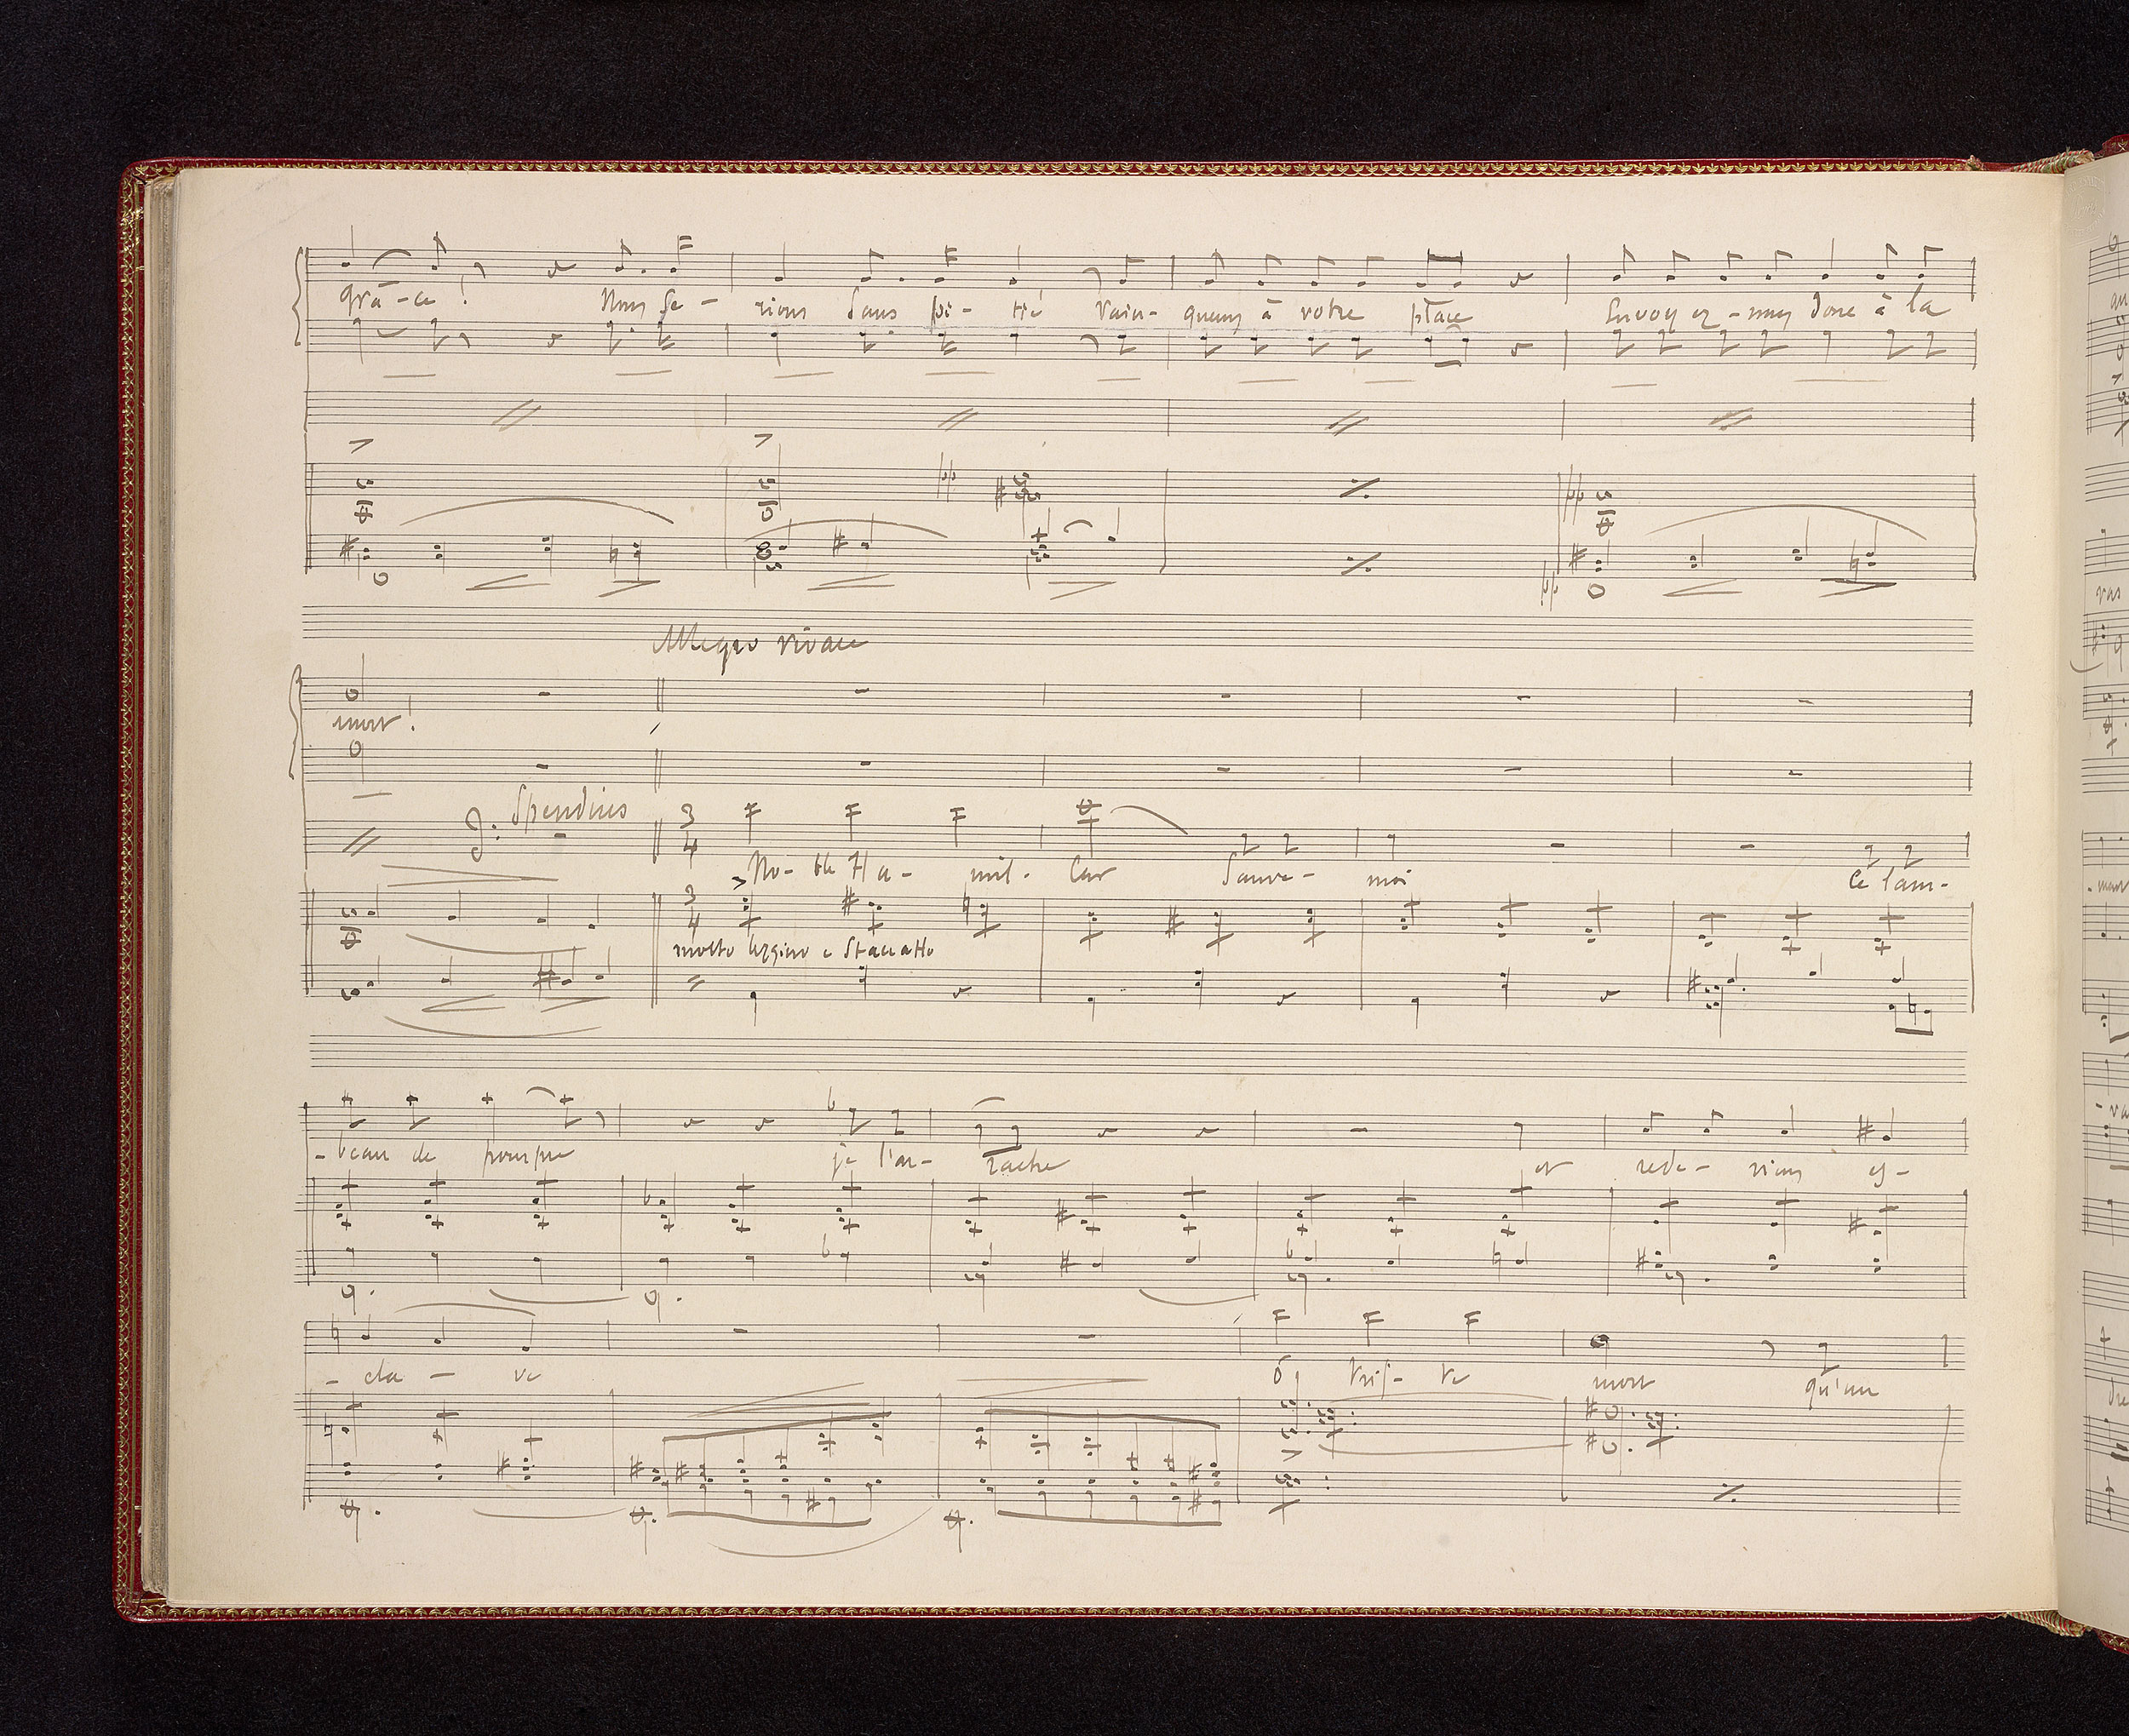 grâ-ce! Nous se-rions sans pi-tié vain-queurs à votre place Envoyez-nous donc à la
Allegro vivace
mort!
Spendius
3 4 No-ble Ha-mil-car Sauve-moi Ce lam-
3 4
molto leggiero e staccato
-beau de pourpre je l'ar-rache et rede-viens es-
-cla-ve ô tris-te mort qu'un